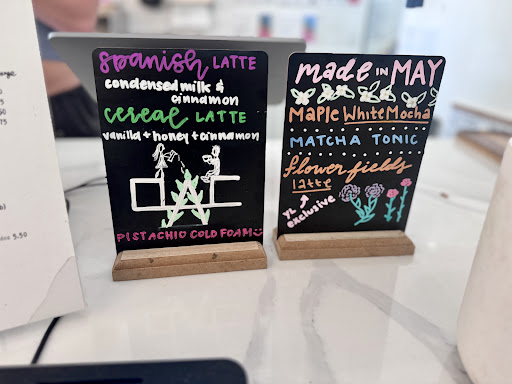 spanish LATTE
condensed milk &
cinnamon
cereal LATTE
vanilla + honey + cinnamon
PISTACHIO COLD FOAM
made IN MAY
MAPLE White Mocha
MATCHA TONIC
flower fields
latte
YL
exclusive
5.50